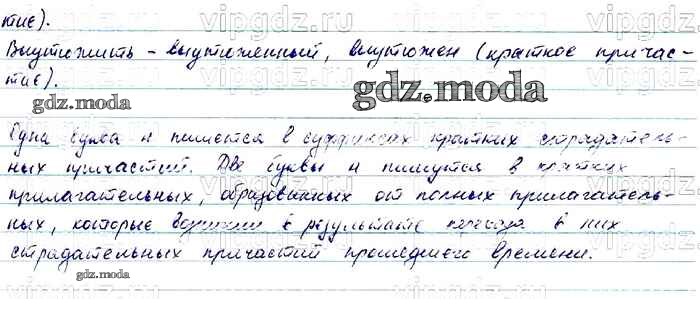 тие).
Выутюжить – выутюженный, выутюжен (краткое причас-
тие).
gdz.moda
gdz.moda
Одна буква н пишется в суффиксах кратких страдатель-
ных причастий. Две буквы н пишутся в кратких
прилагательных, образованных от полных прилагатель-
ных, которые возникли в результате перехода в них
страдательных причастий прошедшего времени.
gdz.moda